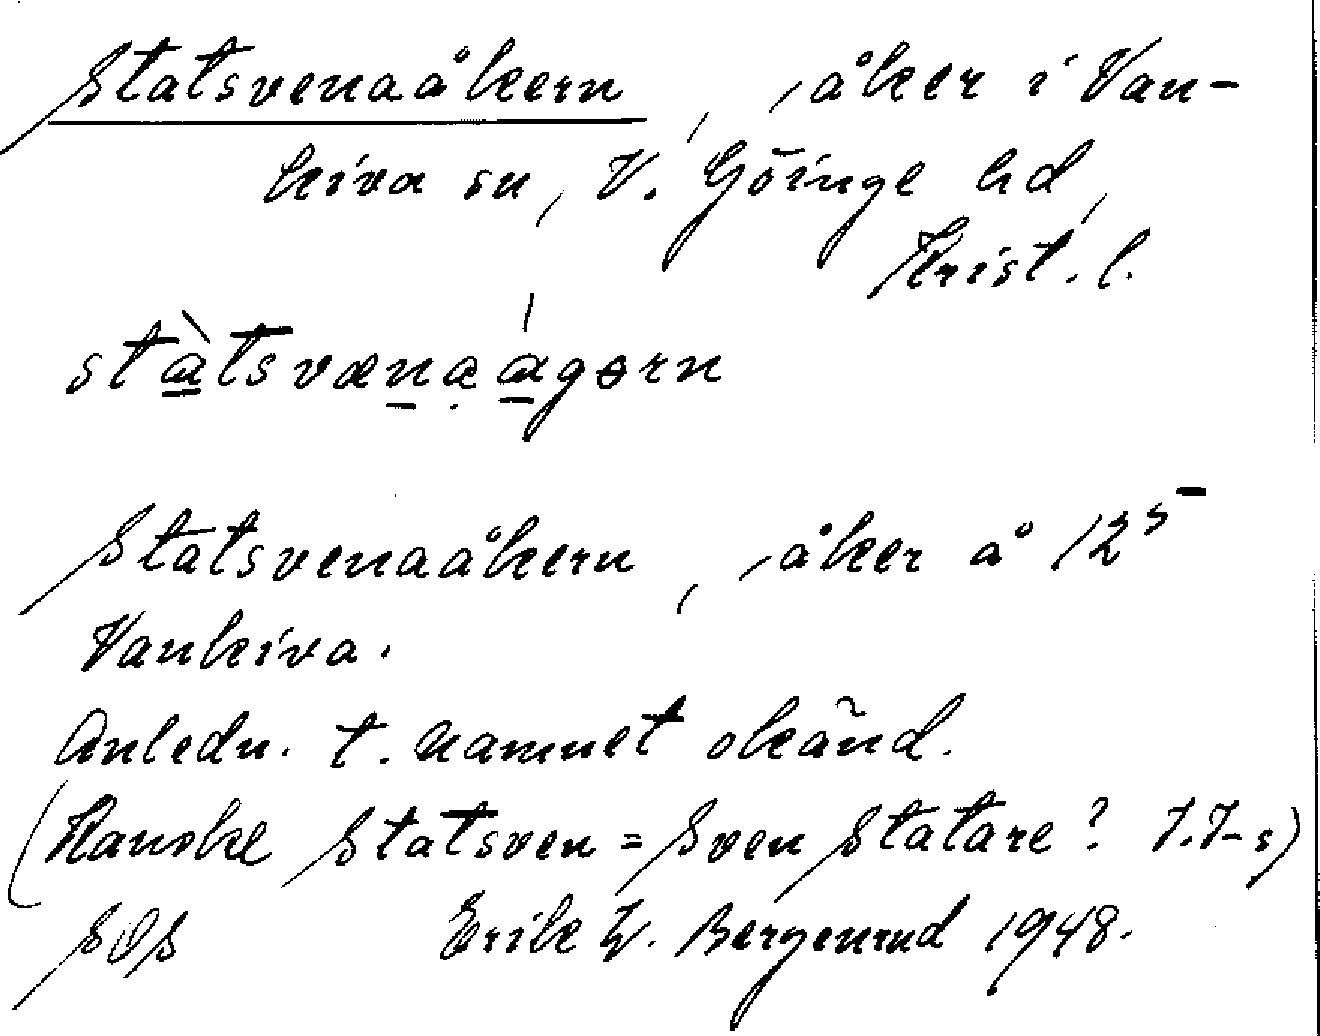 Statsvenaåkern, åker i Van-
kiva sn, V. Göinge hd,
Krist. l.
stàtsvænaágørn
Statsvenaåkern, åker å 12⁵
Vankiva.
Anledn. t. namnet okänd.
(Kanske Statsven = Sven Statare? I.I-s)
SOS Erik W. Bergenrud 1948.